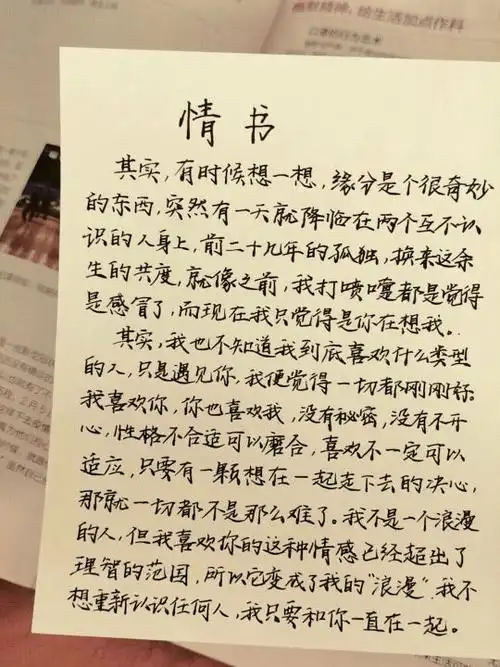 幽默精神：给生活加点作料
情书
其实，有时候想一想，缘分是个很奇妙
的东西，突然有一天就降临在两个互不认
识的人身上，前二十九年的孤独，换来这余
生的共度，就像之前，我打喷嚏都是觉得
是感冒了，而现在我只觉得是你在想我。
其实，我也不知道我到底喜欢什么类型
的人，只是遇见你，我便觉得一切都刚刚好：
我喜欢你，你也喜欢我，没有秘密，没有不开
心，性格不合适可以磨合，喜欢不一定可以
适应，只要有一颗想在一起走下去的决心，
那就一切都不是那么难了。我不是一个浪漫
的人，但我喜欢你的这种情感已经超出了
理智的范围，所以它变成了我的“浪漫”.我不
想重新认识任何人，我只要和你一直在一起。